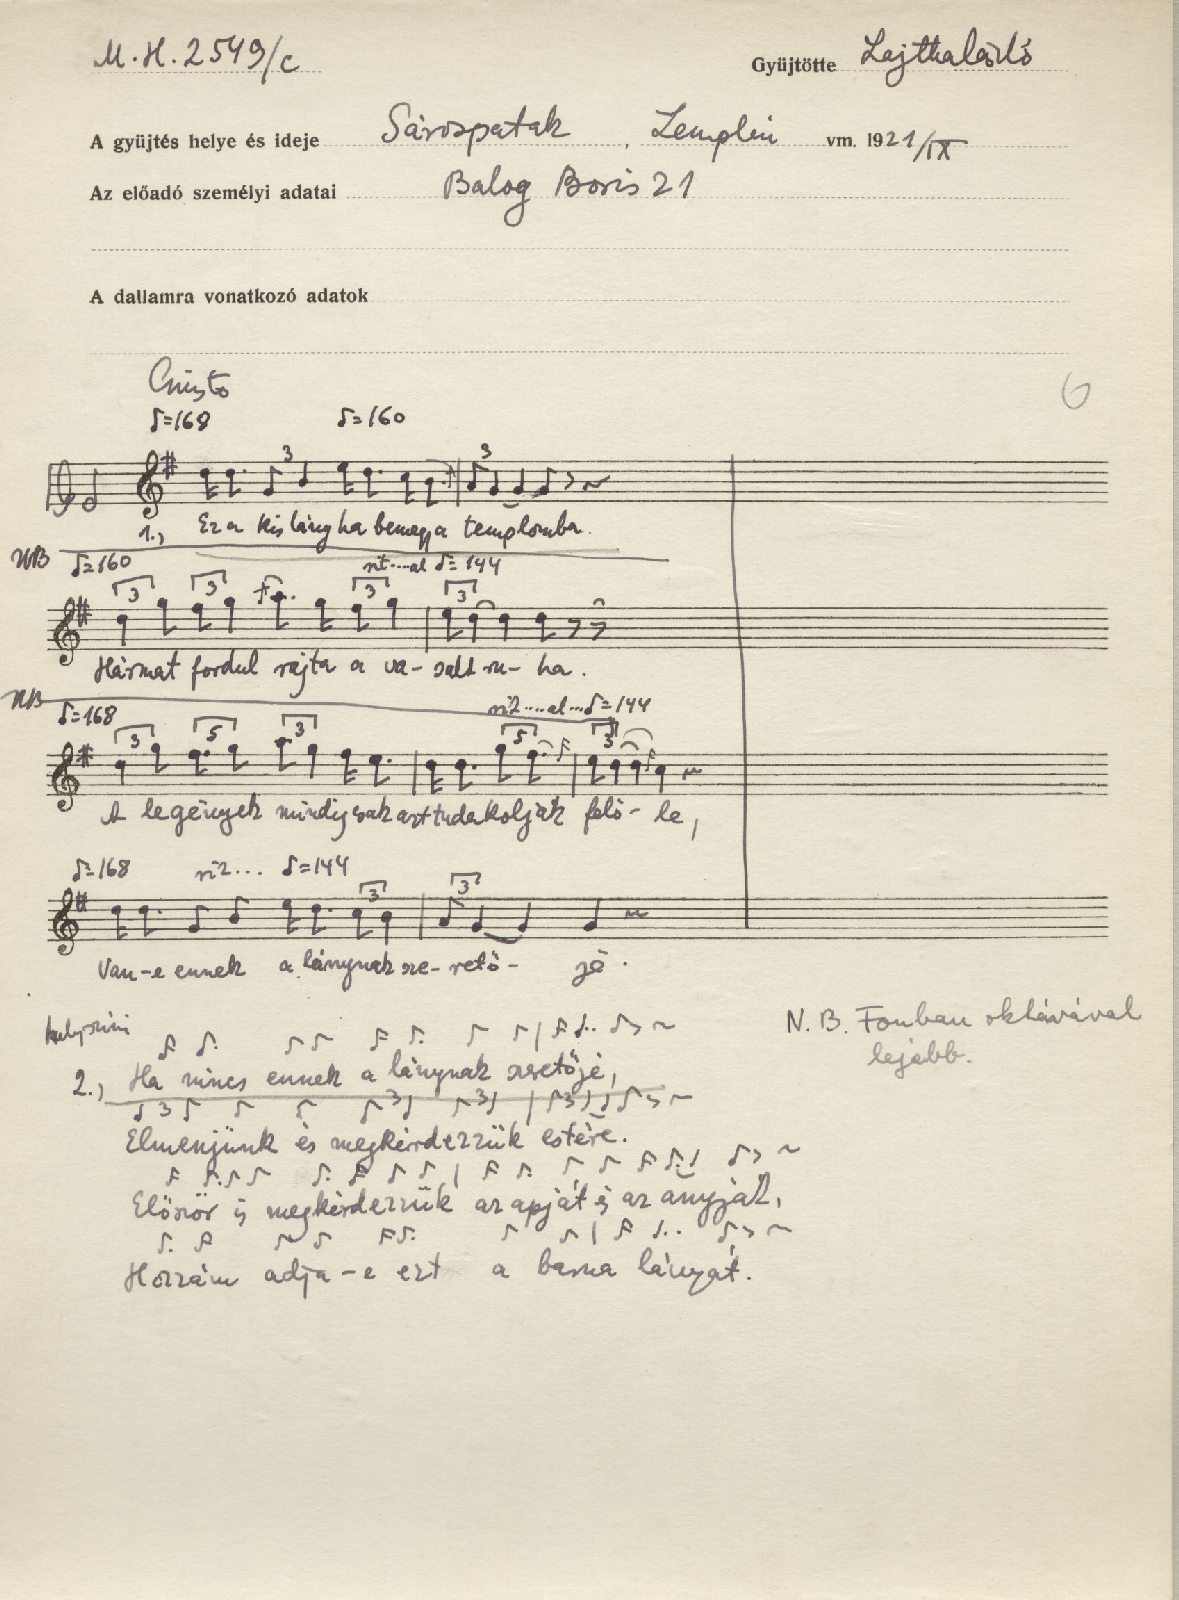 M.H. 2549/c
Gyüjtötte Lajtha László
A gyüjtés helye és ideje Sárospatak, Zemplén vm. 1921/IX
Az előadó személyi adatai Balog Boris 21
A dallamra vonatkozó adatok
6
♪=168 ♪=160
3 3
1., Ez a kislány ha bemegy a templomba.
NB ♪=160 rit....al ♪=144
3 3 3 3
Hármat fordul rajta a va-salt ru-ha.
NB ♪=168 rit....al...♪=144
3 5 3 5 3
A legények mindig csak azt tudakolják felő-le,
♪=168 rit... ♪=144
3 3
Van-e ennek a lánynak sze-rető-je.
helyszini
N.B. Fonban oktávával
lejebb.
2., Ha nincs ennek a lánynak szeretője,
3 3 3 3
Elmenjünk és megkérdezzük estére.
Először is megkérdezzük az apját és az anyját,
Hozzám adja-e ezt a barna lányát.